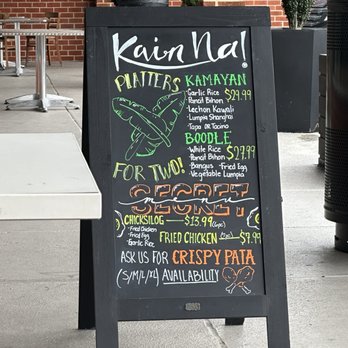 Kain Na!
PLATTERS
FOR TWO!
KAMAYAN
Garlic Rice
Pancit Bihon
$29.99
Lechon Kawali
Lumpia Shanghai
Tapa OR Tocino
BOODLE
White Rice
Pancit Bihon
$27.99
Bangus Fried Egg
Vegetable Lumpia
SECRET
menu
CHICKSILOG $13.99
Fried Chicken
Fried Egg
Garlic Rice
FRIED CHICKEN $7.99
ASK US FOR CRISPY PATA
(S/M/L/XL) AVAILABILITY